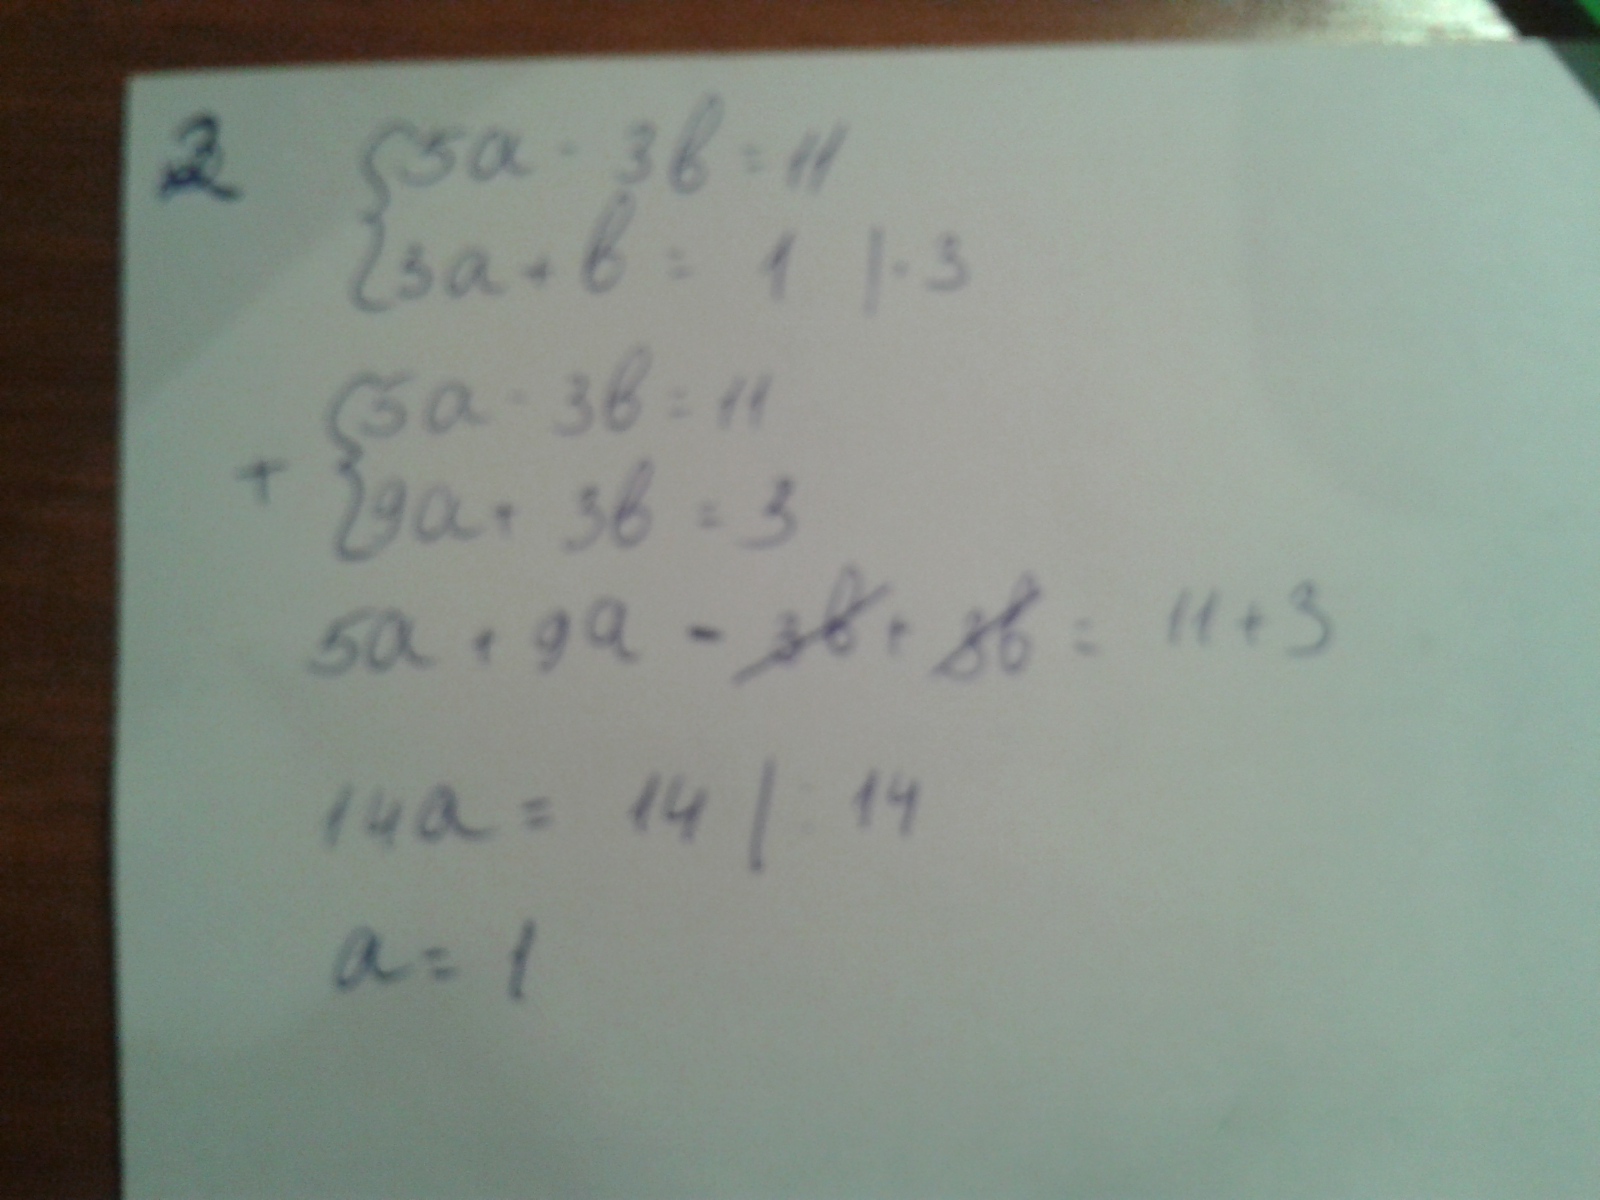 2 {5a - 3b = 11
{3a + b = 1 | · 3
{5a - 3b = 11
+ {9a + 3b = 3
5a + 9a - 3b + 3b = 11 + 3
14a = 14 | : 14
a = 1